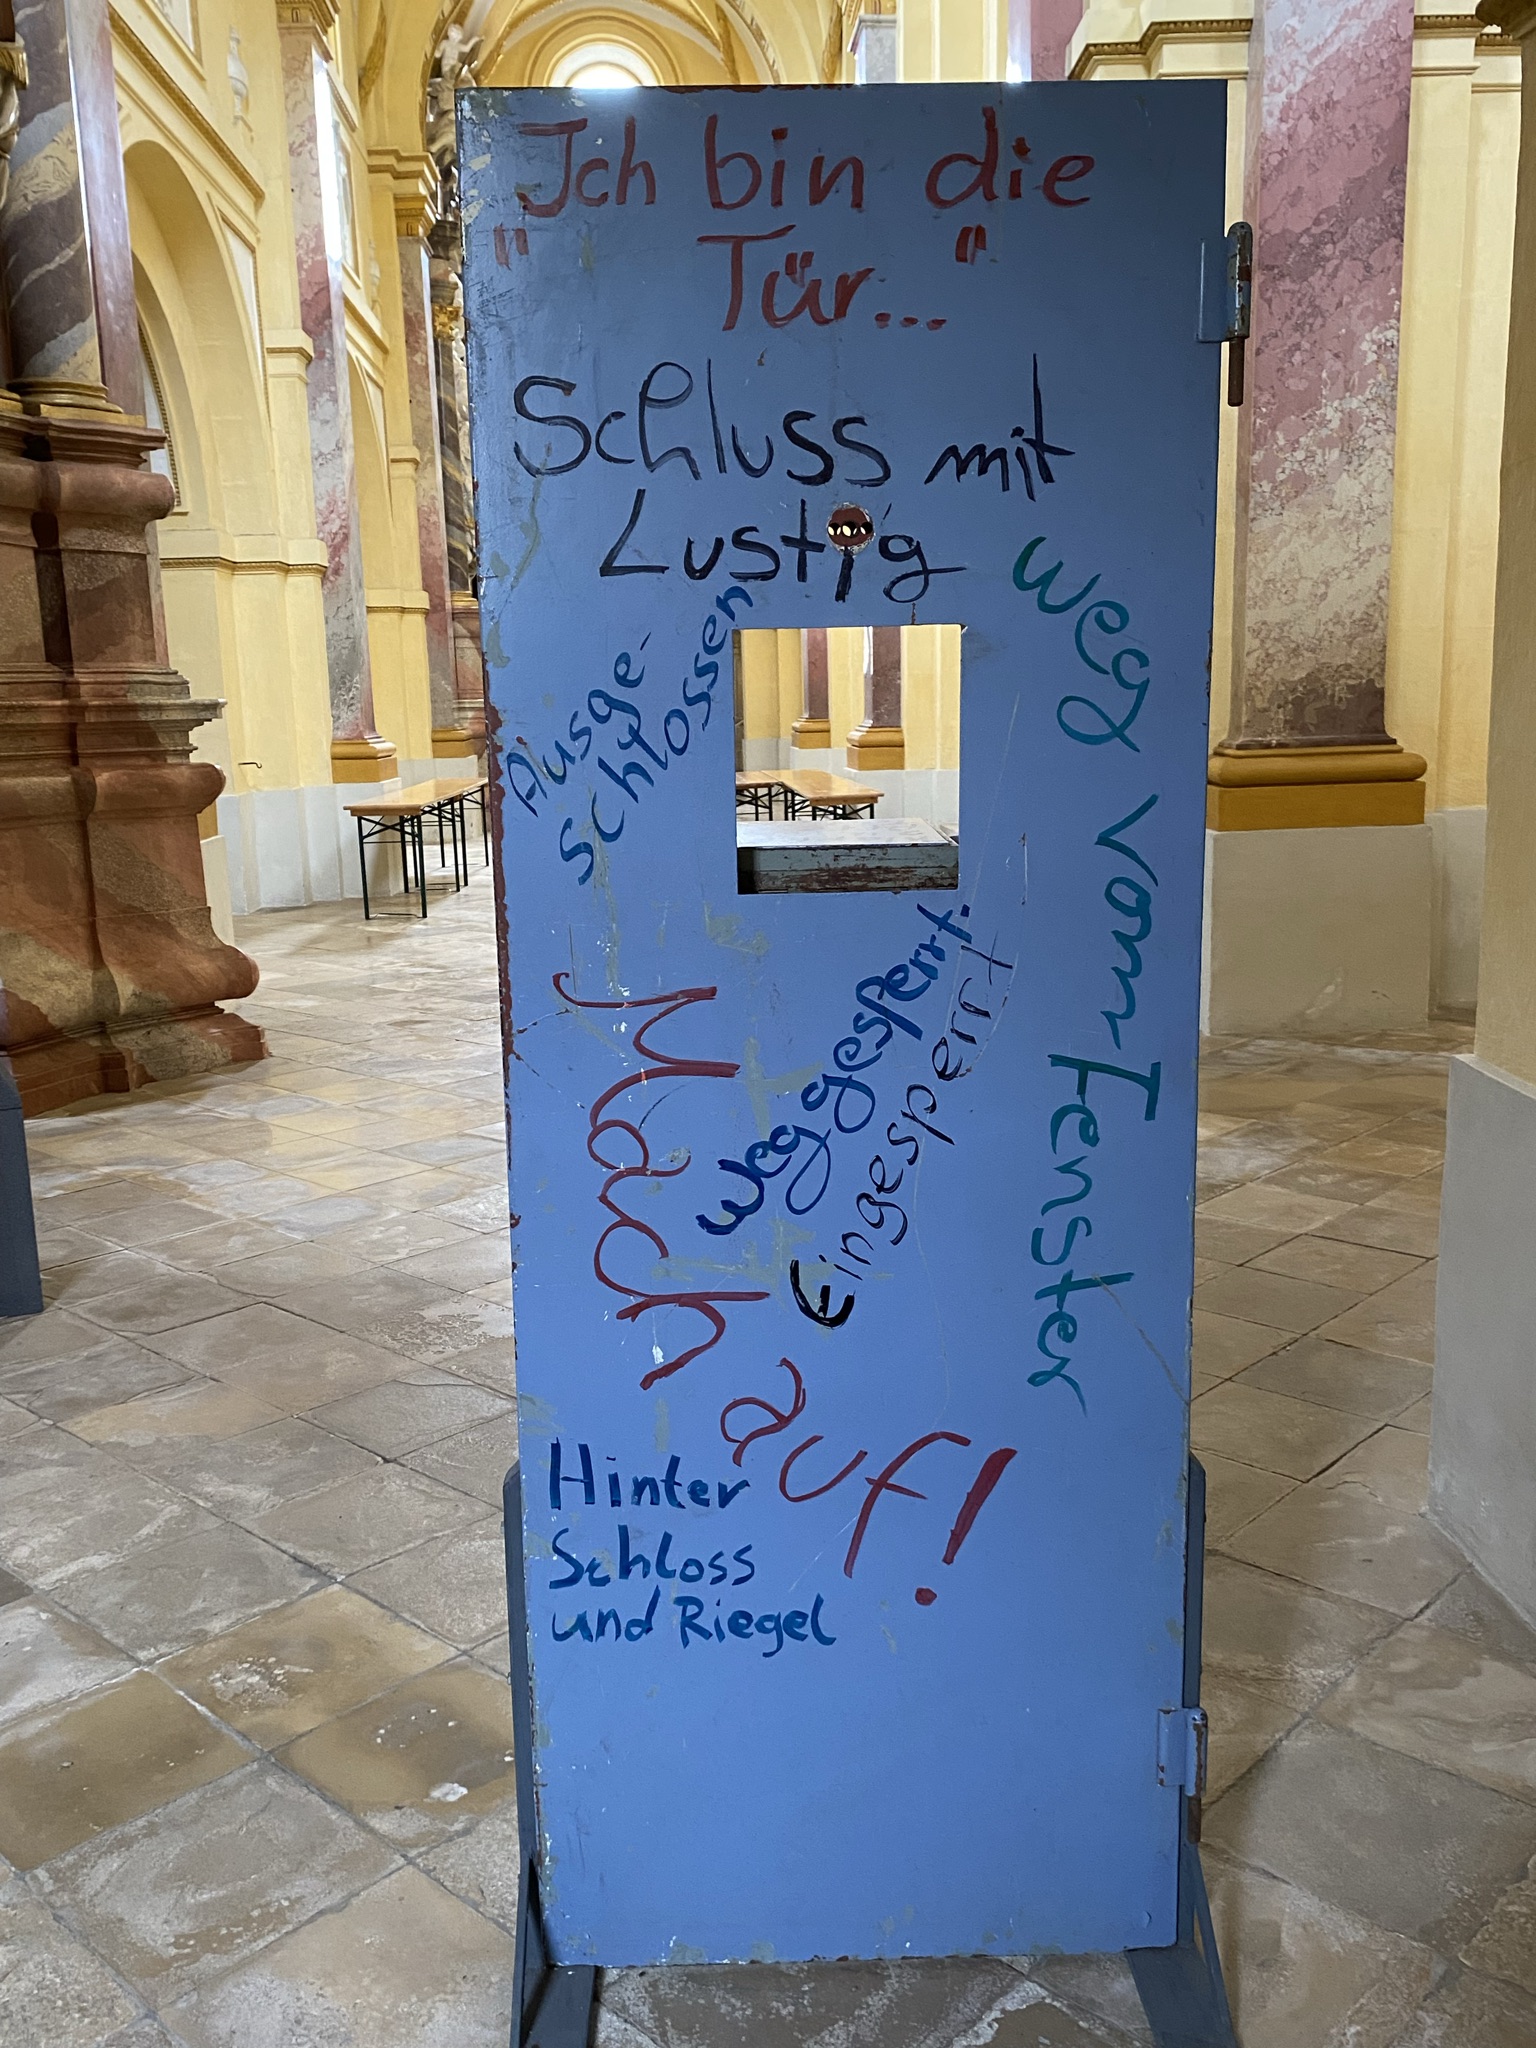 Ich bin die
"Tür..."
Schluss mit
Lustig
Ausge-
schlossen
Weg vom Fenster
Weggesperrt.
Eingesperrt
Mach auf!
Hinter
Schloss
und Riegel